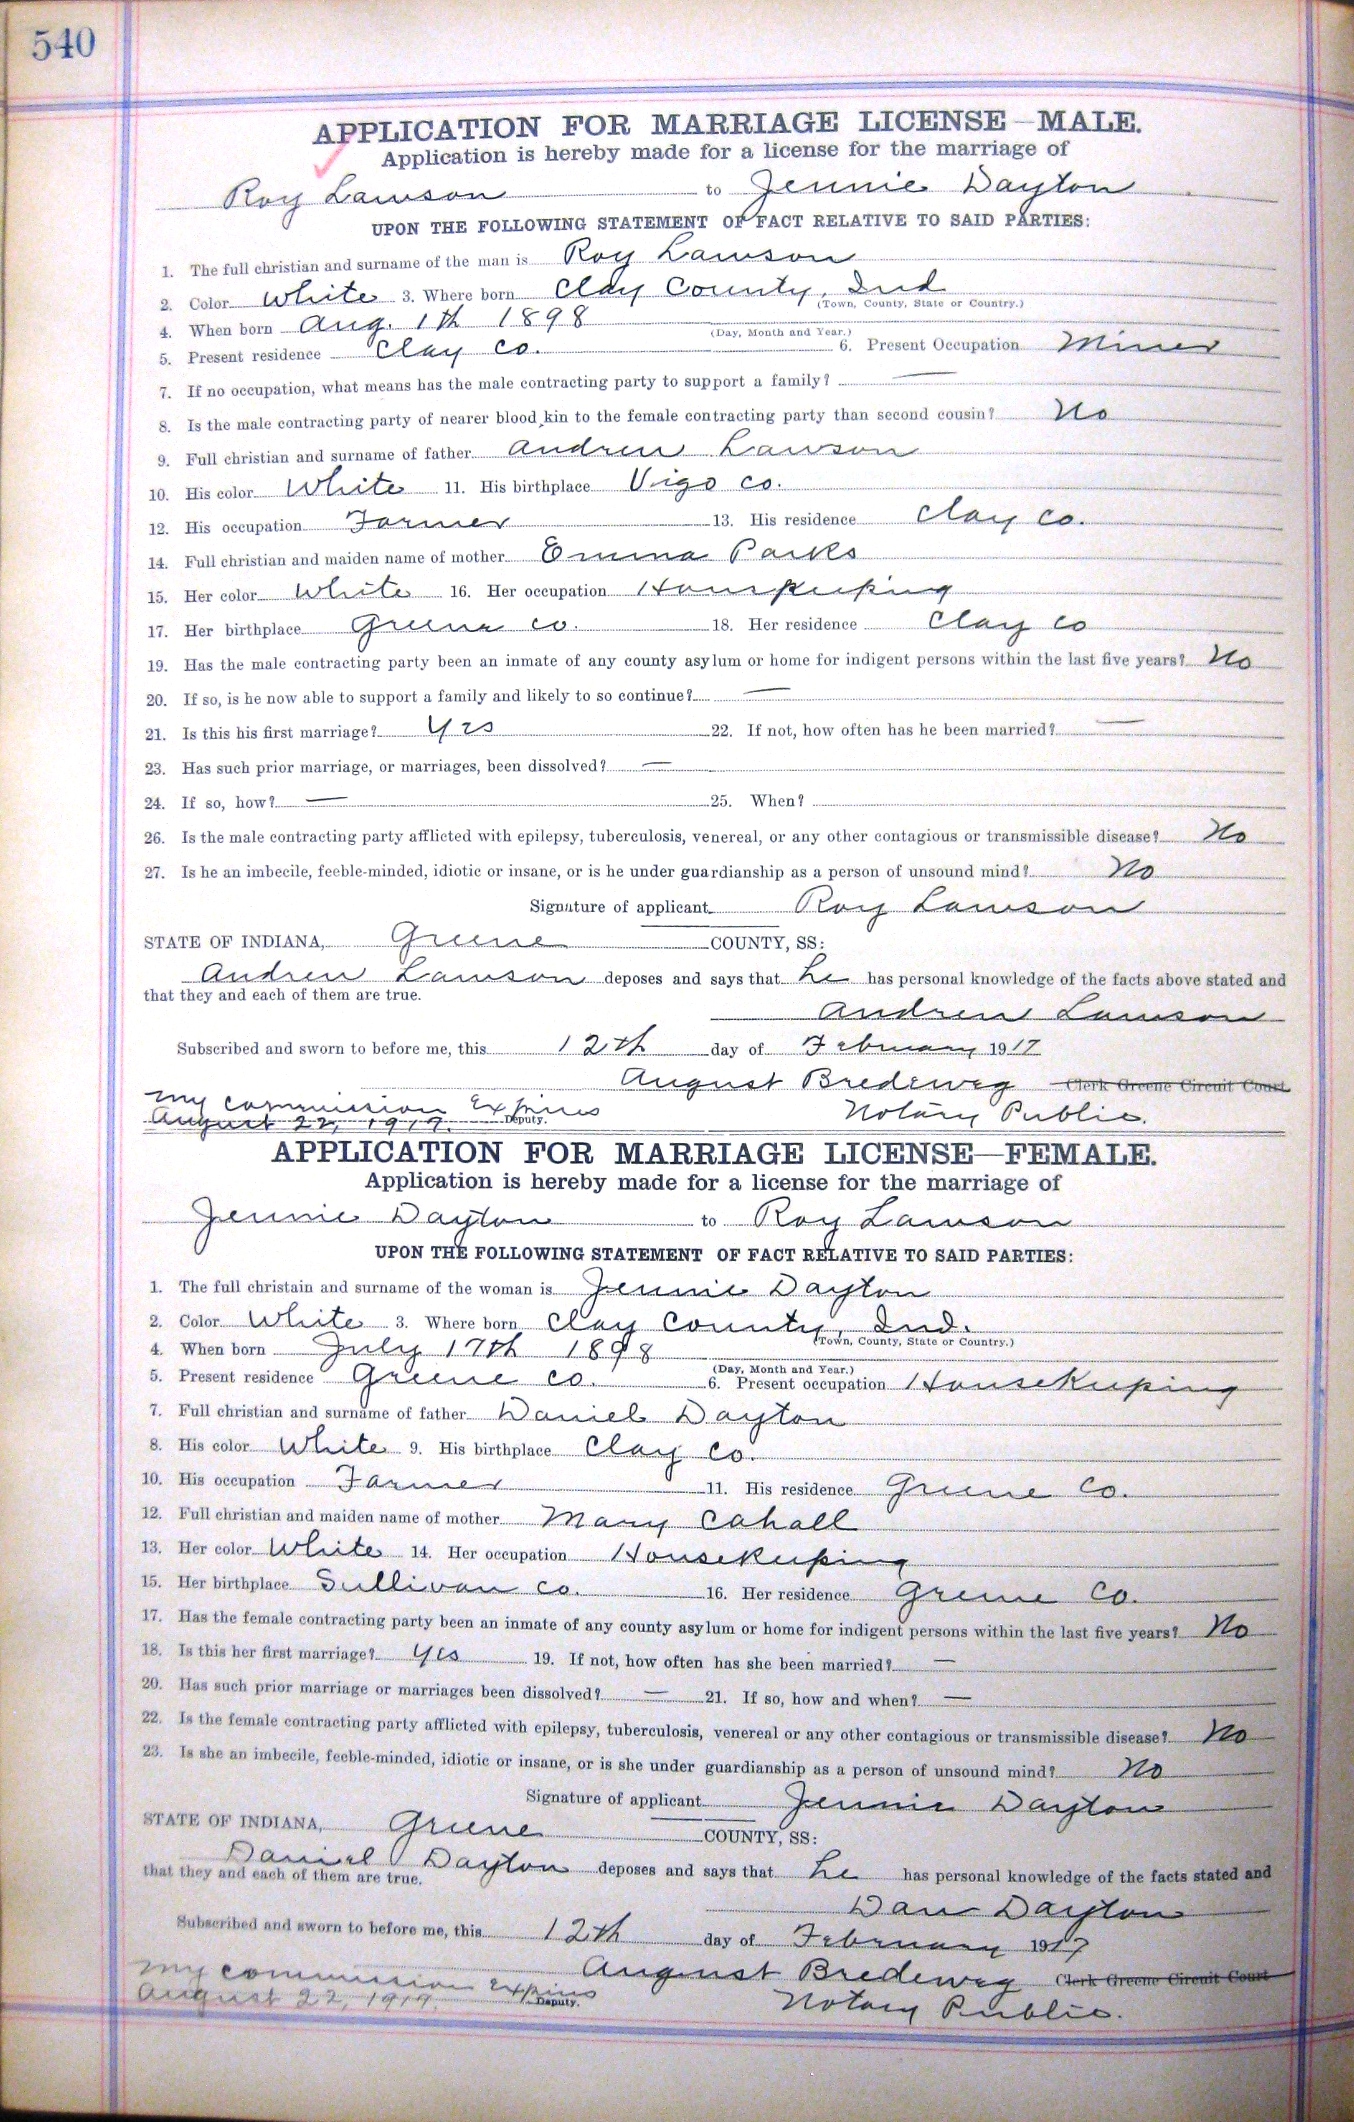 540
APPLICATION FOR MARRIAGE LICENSE—MALE.
Application is hereby made for a license for the marriage of
Roy Lawson to Jennie Dayton
UPON THE FOLLOWING STATEMENT OF FACT RELATIVE TO SAID PARTIES:
1. The full christian and surname of the man is Roy Lawson
2. Color White 3. Where born Clay County, Ind
(Town, County, State or Country.)
4. When born Aug. 1th 1898
(Day, Month and Year.)
5. Present residence Clay Co. 6. Present Occupation Miner
7. If no occupation, what means has the male contracting party to support a family? —
8. Is the male contracting party of nearer blood kin to the female contracting party than second cousin? No
9. Full christian and surname of father Andrew Lawson
10. His color White 11. His birthplace Vigo Co.
12. His occupation Farmer 13. His residence Clay Co.
14. Full christian and maiden name of mother Emma Parks
15. Her color White 16. Her occupation Houskeeping
17. Her birthplace Greene Co. 18. Her residence Clay Co
19. Has the male contracting party been an inmate of any county asylum or home for indigent persons within the last five years? No
20. If so, is he now able to support a family and likely to so continue? —
21. Is this his first marriage? Yes 22. If not, how often has he been married? —
23. Has such prior marriage, or marriages, been dissolved? —
24. If so, how? — 25. When?
26. Is the male contracting party afflicted with epilepsy, tuberculosis, venereal, or any other contagious or transmissible disease? No
27. Is he an imbecile, feeble-minded, idiotic or insane, or is he under guardianship as a person of unsound mind? No
Signature of applicant Roy Lawson
STATE OF INDIANA, Greene COUNTY, SS:
Andrew Lawson deposes and says that he has personal knowledge of the facts above stated and
that they and each of them are true.
Andrew Lawson
Subscribed and sworn to before me, this 12th day of February 1917
August Bredeweg Clerk Greene Circuit Court
My commission Expires Notary Public.
August 22, 1919. Deputy.
APPLICATION FOR MARRIAGE LICENSE—FEMALE.
Application is hereby made for a license for the marriage of
Jennie Dayton to Roy Lawson
UPON THE FOLLOWING STATEMENT OF FACT RELATIVE TO SAID PARTIES:
1. The full christain and surname of the woman is Jennie Dayton
2. Color White 3. Where born Clay County, Ind.
(Town, County, State or Country.)
4. When born July 17th 1898
(Day, Month and Year.)
5. Present residence Greene Co. 6. Present occupation Housekeeping
7. Full christian and surname of father Daniel Dayton
8. His color White 9. His birthplace Clay Co.
10. His occupation Farmer 11. His residence Greene Co.
12. Full christian and maiden name of mother Mary Cahall
13. Her color White 14. Her occupation Housekeeping
15. Her birthplace Sullivan Co. 16. Her residence Greene Co.
17. Has the female contracting party been an inmate of any county asylum or home for indigent persons within the last five years? No
18. Is this her first marriage? Yes 19. If not, how often has she been married? —
20. Has such prior marriage or marriages been dissolved? — 21. If so, how and when? —
22. Is the female contracting party afflicted with epilepsy, tuberculosis, venereal or any other contagious or transmissible disease? No
23. Is she an imbecile, feeble-minded, idiotic or insane, or is she under guardianship as a person of unsound mind? No
Signature of applicant Jennie Dayton
STATE OF INDIANA, Greene COUNTY, SS:
Daniel Dayton deposes and says that he has personal knowledge of the facts stated and
that they and each of them are true.
Dan Dayton
Subscribed and sworn to before me, this 12th day of February 1917
August Bredeweg Clerk Greene Circuit Court
My commission Expires Notary Public.
August 22, 1919. Deputy.